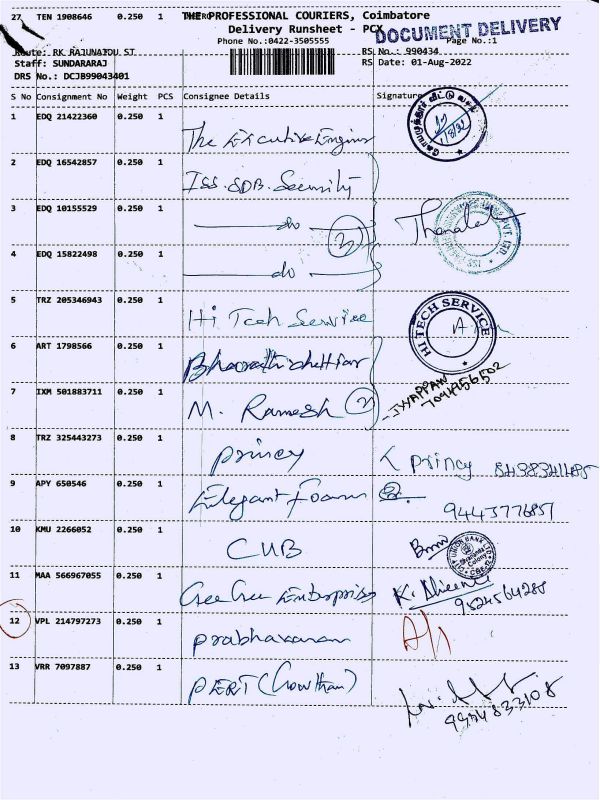 27 TEN 1908646 0.250 1 THE PROFESSIONAL COURIERS, Coimbatore
Delivery Runsheet - PCX
DOCUMENT DELIVERY
Phone No.:0422-3505555 Page No.:1
Route: RK RAJUNAIDU ST RS No.: 990434
Staff: SUNDARARAJ RS Date: 01-Aug-2022
DRS No.: DCJB99043401
S No Consignment No Weight PCS Consignee Details Signature
1 EDQ 21422360 0.250 1 The Executive Engineer
2 EDQ 16542857 0.250 1 ISS. SDB. Security
3 EDQ 10155529 0.250 1 do
4 EDQ 15822498 0.250 1 do
5 TRZ 205346943 0.250 1 Hi Tech Service HI TECH SERVICE
6 ART 1798566 0.250 1 Bharathi chettiar
7 IXM 501883711 0.250 1 M. Ramesh IYYAPPAN
7094956502
8 TRZ 325443273 0.250 1 princy princy
9 APY 650546 0.250 1 Elegant Foam
10 KMU 2266052 0.250 1 CUB
11 MAA 566967055 0.250 1 Gee Gee Enterprises
9524564285
12 VPL 214797273 0.250 1 prabhakaran
13 VRR 7097887 0.250 1 PERT (Gowtham)